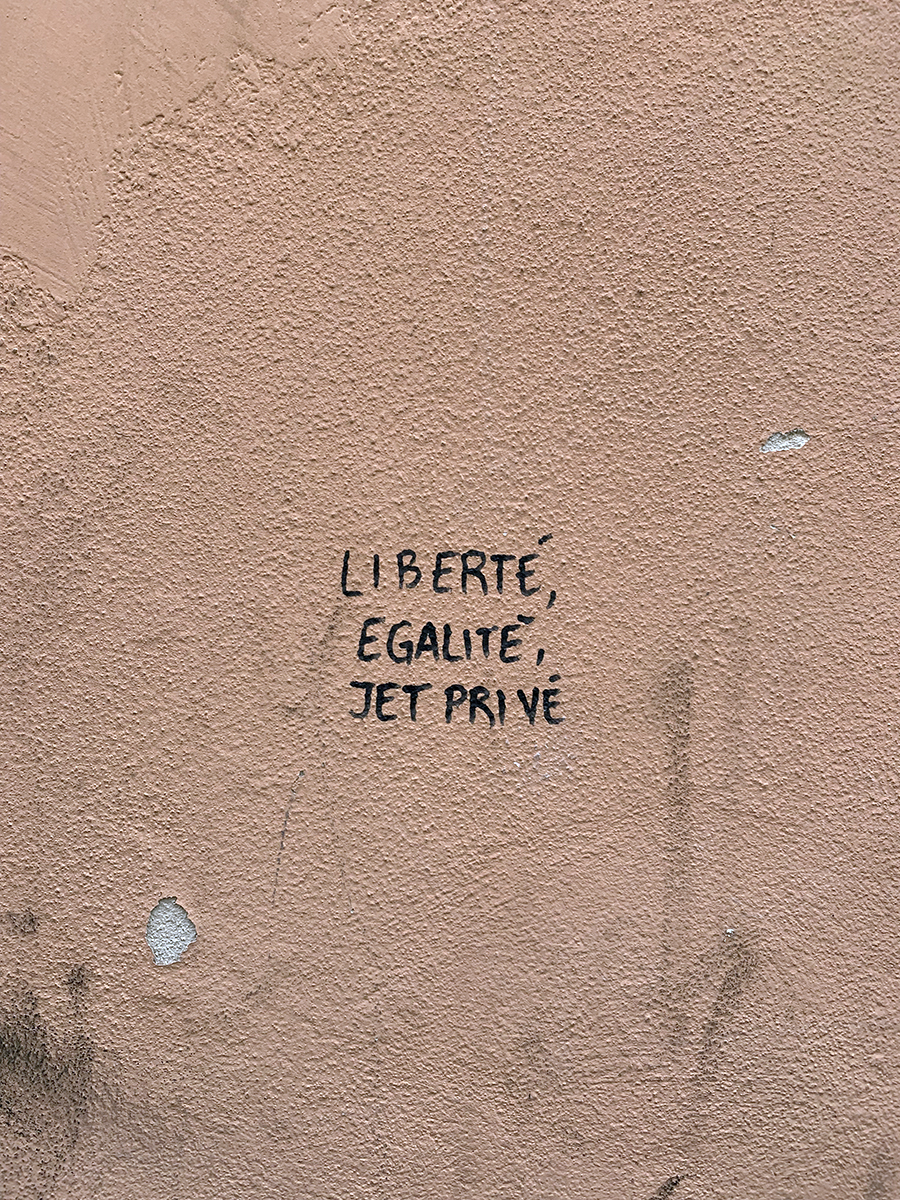 LIBERTÉ,
EGALITÉ,
JET PRIVÉ